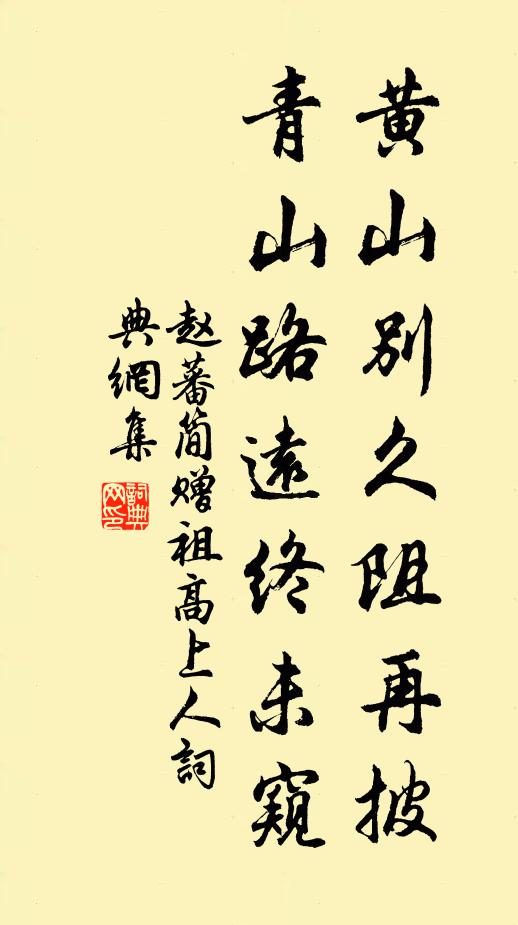 黄山别久阻再披
青山路遠終未窺
赵蕃简赠祖高上人詞
典網集
詞典网印